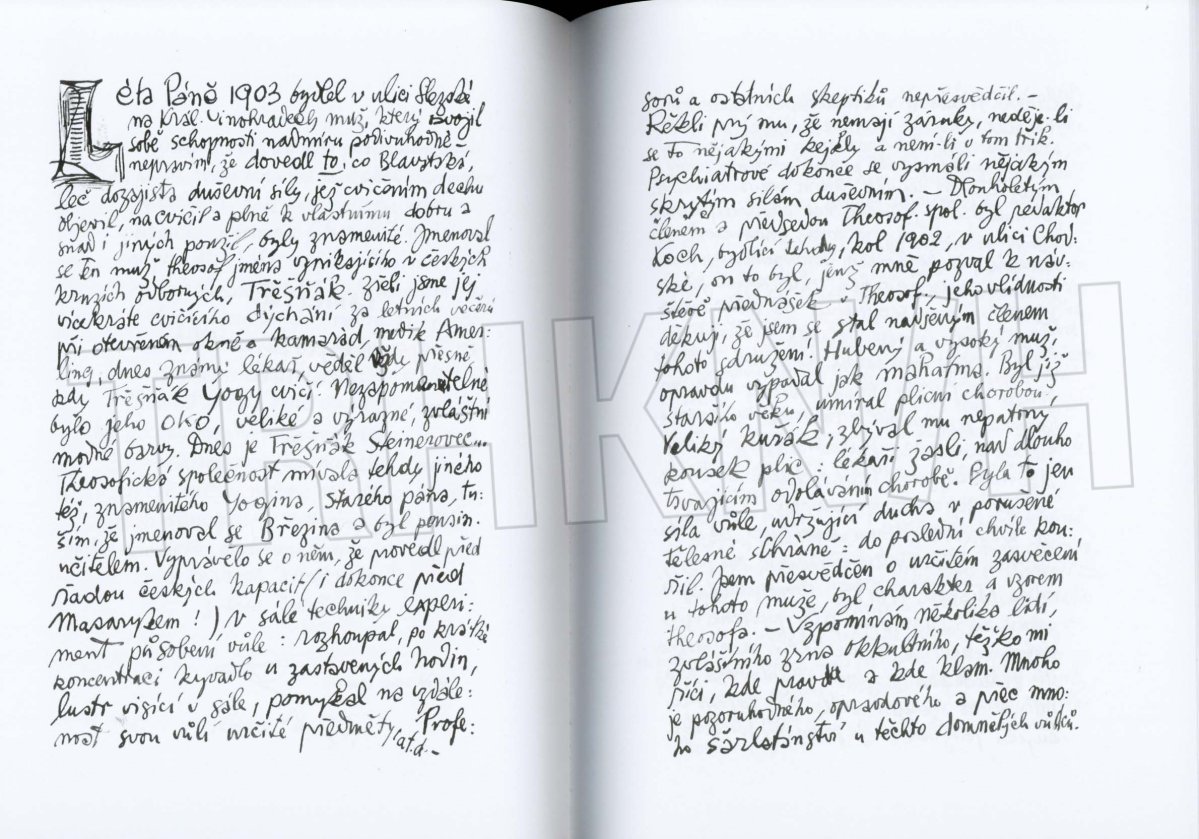 Léta Páně 1903 bydlel v ulici Slezské
na Král. Vinohradech muž, který osvojil
sobě schopnosti nadmíru podivuhodné –
nepravím, že dovedl to, co Blavatská,
leč dozajista duševní síly, jež cvičením dechu
objevil, nacvičil a plně k vlastnímu dobru a
snad i jiných použil, byly znamenité. Jmenoval
se ten muž theosof jména vynikajícího v českých
kruzích odborných, Třešňák. Zřeli jsme jej
vícekráte cvičícího dýchání za letních večerů
při otevřeném okně a kamarád, medik Amer-
ling, dnes známý lékař, věděl vždy přesně
kdy Třešňák Yogy cvičí. Nezapomenutelné
bylo jeho oko, veliké a výrazné, zvláštní
modré barvy. Dnes je Třešňák Steinerovec...
Theosofická společnost mívala tehdy jiného
též, znamenitého Yogina, starého pána, tu-
ším, že jmenoval se Březina a byl pensin.
učitelem. Vyprávělo se o něm, že provedl před
řadou českých kapacit (i dokonce před
Masarykem!) v sále techniky experi:
ment působení vůle: rozhoupal, po krátké
koncentraci kyvadlo u zastavených hodin,
lustr visící v sále, pomykal na vzdále:
nost svou vůlí určité předměty atd.– Profe:
sorů a ostatních skeptiků nepřesvědčil. –
Řekli prý mu, že nemají záruky, neděje-li
se to nějakými kejkly a není-li v tom trik.
Psychiatrové dokonce se vysmáli nějakým
skrytým silám duševním. – Dlouholetým
členem a předsedou Theosof. spol. byl redaktor
Koch, bydlící tehdy, kol 1902, v ulici Chod-
ské, on to byl, jenž mně pozval k náv-
štěvě přednášek v Theosof., jeho vlídnosti
děkuji, že jsem se stal nadšeným členem
tohoto sdružení! Hubený a vysoký muž,
opravdu vypadal jak mahatma. Byl již
staršího věku, umíral plicní chorobou.
Veliký kuřák, zbýval mu nepatrný
kousek plic: lékaři žasli, nad dlouho
trvajícím odoláváním chorobě. Byla to jen
síla vůle, udržující ducha v porušené
tělesné schráně: do poslední chvíle kou-
řil. Jsem přesvědčen o určitém zasvěcení
u tohoto muže, byl charakter a vzorem
theosofa. – Vzpomínám několika lidí,
zvláštního zrna okkultního, těžko mi
říci, kde pravda a kde klam. Mnoho
je pozoruhodného, opravdového a přec mno:
ho šarlatánství u těchto domnělých vůdců.
TRHKNIH